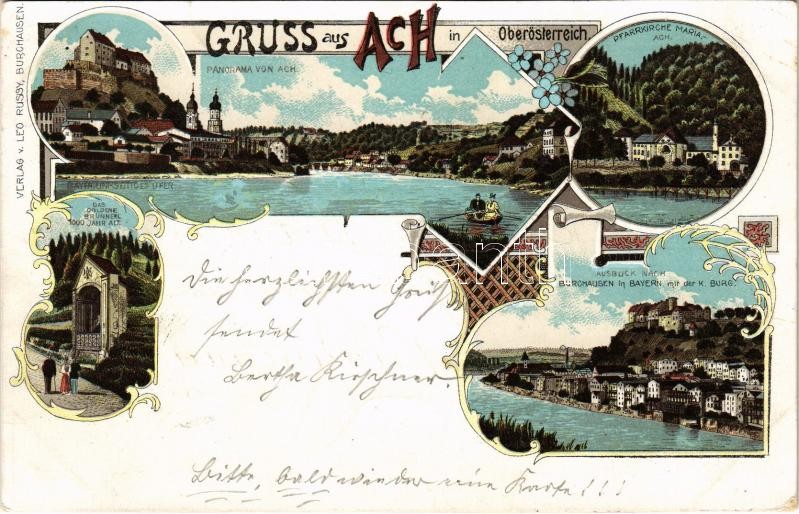 GRUSS aus ACH in Oberösterreich.
VERLAG v. LEO RUSSY, BURGHAUSEN.
PANORAMA VON ACH.
BAYR. JENSEITIGES UFER
PFARRKIRCHE MARIA-
ACH.
DAS
GOLDENE
BRÜNNERL
1000 JAHR ALT.
AUSBLICK NACH
BURGHAUSEN in BAYERN mit der K. BURG.
Die herzlichsten Grüße
sendet
Bertha Kirschner
Bitte, bald wieder eine Karte!!!